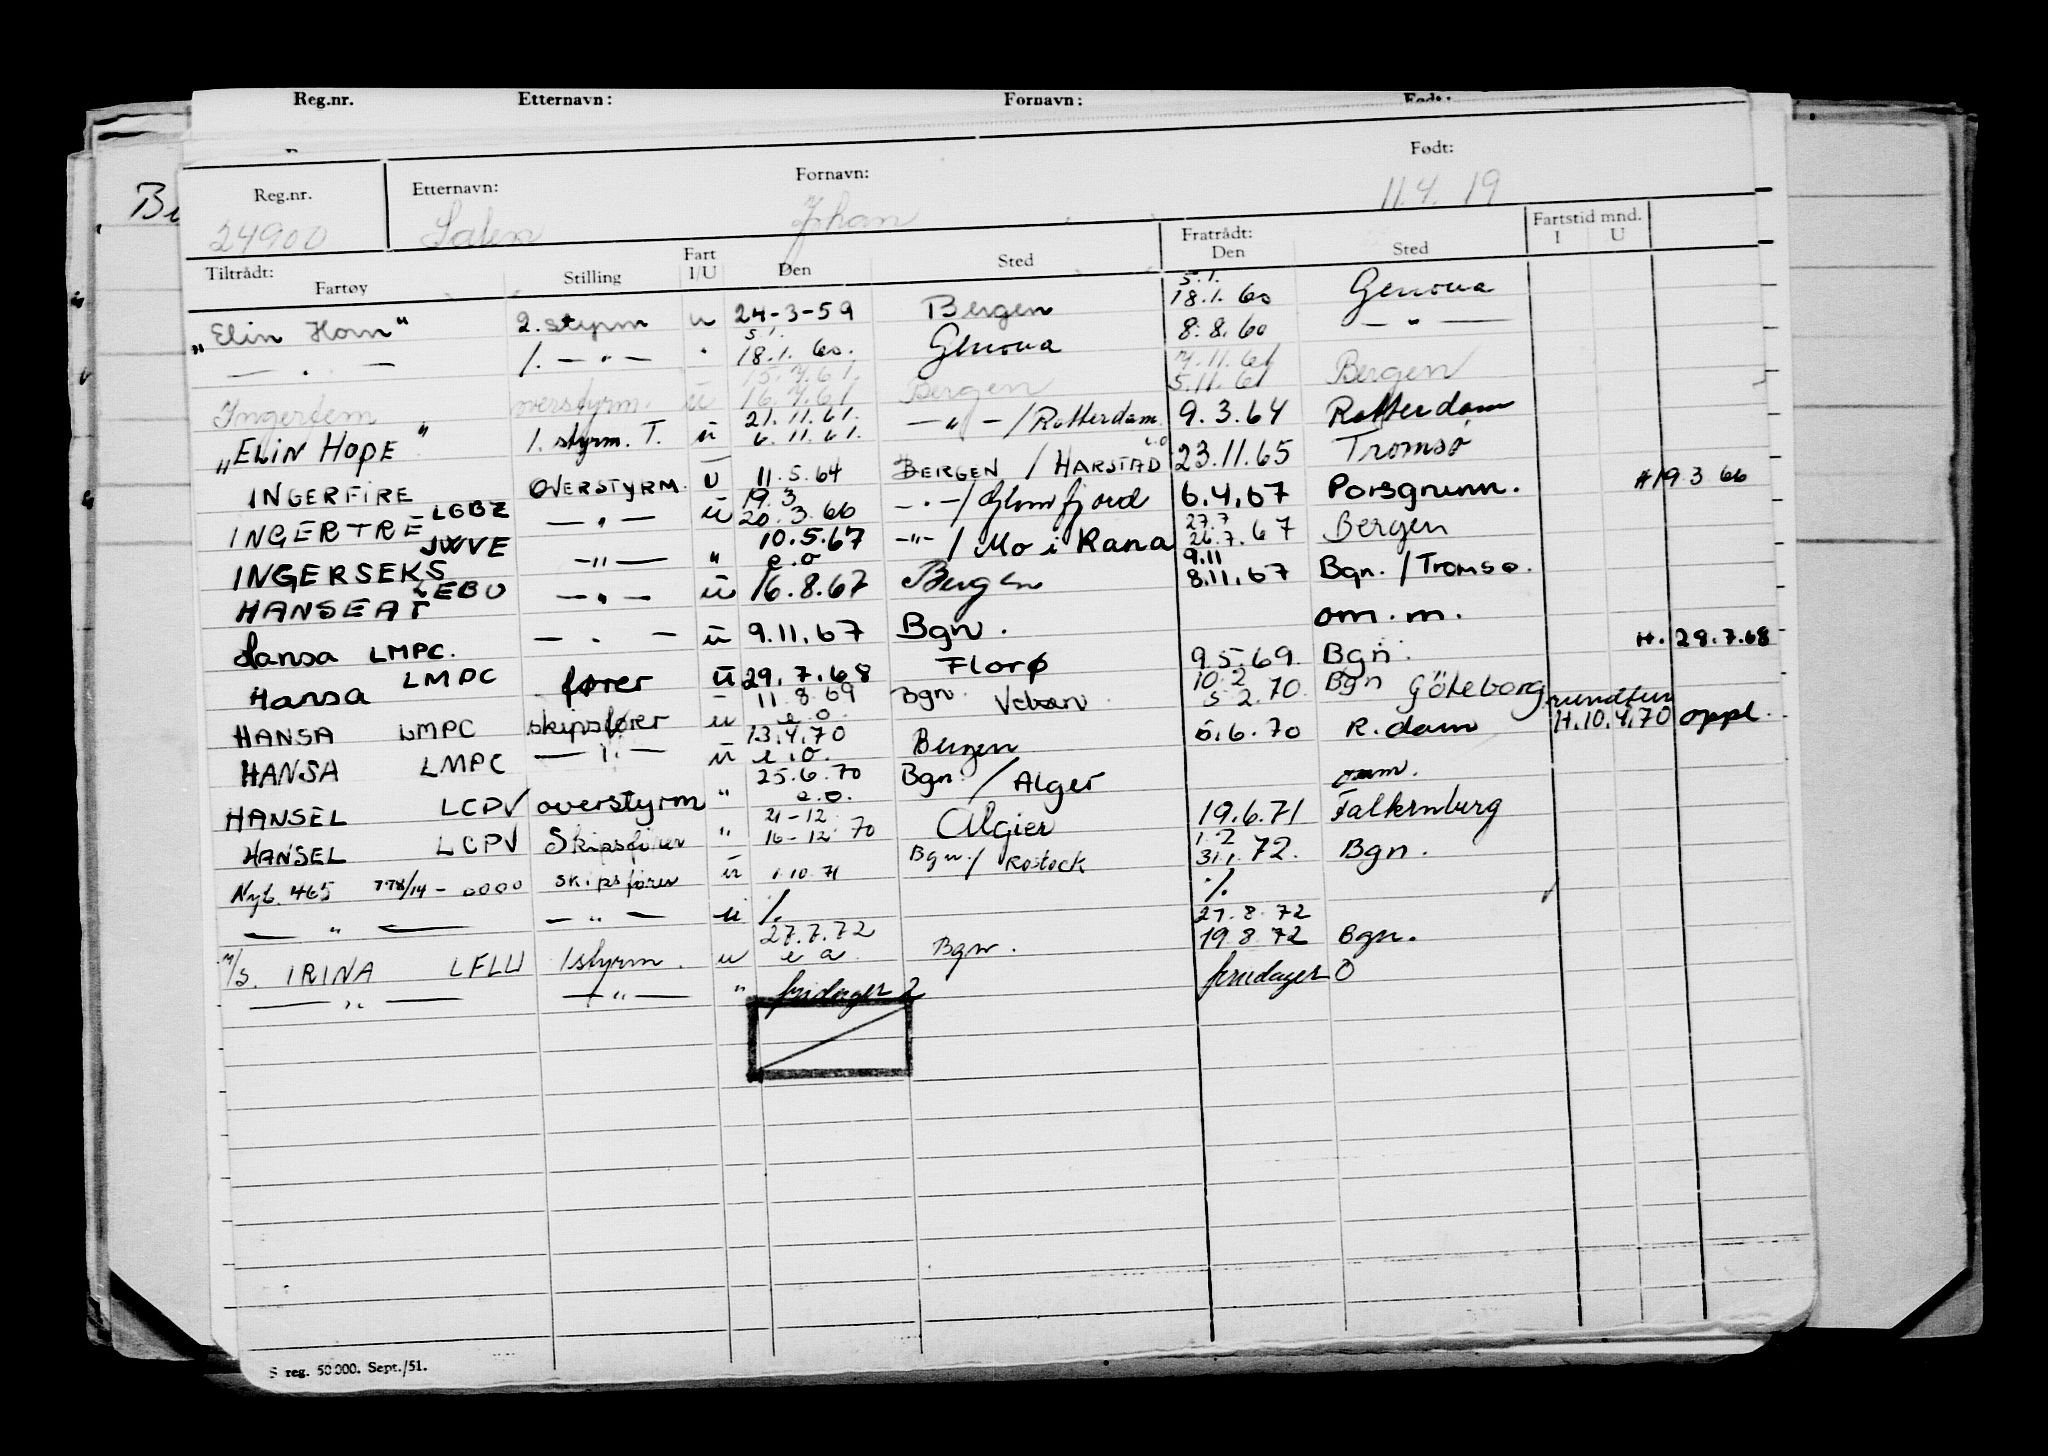 Reg.nr. Etternavn: Fornavn: Født:
Reg.nr. Etternavn: Fornavn: Født:
24900 Salen Johan 11.4.19
Tiltrådt: Fratrådt: Fartstid mnd.
Fartøy Stilling Fart I/U Den Sted Den Sted I U
5.1.
„Elin Horn" 2. styrm u 24-3-59 Bergen 18.1.60 Genova
5.1.
— " — 1. — " — " 18.1.60. Genova 8.8.60 — " —
15.4.61. 4.11.61
Ingerdem overstyrm. ū 16.4.61 Bergen 5.11.61 Bergen
21.11.61.
„ELIN HOPE" 1. styrm. T. ū 6.11.61. — " — / Rotterdam 9.3.64 Rotterdam
INGERFIRE OVERSTYRM. U 11.5.64 BERGEN / HARSTAD 23.11.65 Tromsø
19.3
INGERTRE LGBZ — " — ū 20.3.66 — " — / Glomfjord 6.4.67 Porsgrunn. H 19.3 66
27.7
INGERSEKS JWVE — " — " 10.5.67 e.o — " — / Mo i Rana 26.7.67 Bergen
9.11
HANSEAT LEBU — " — ū 16.8.67 Bergen 8.11.67 Bgn. / Tromsø.
Hansa LMPC. — " — ū 9.11.67 Bgn. om.m.
Hansa LMPC fører ū 29.7.68 Florø 9.5.69. Bgn. H. 28.7.68
11.8.69 10.2
HANSA LMPC skipsfører u e.o. Bgn. 5.2.70. Bgn Göteborg rundtur
13.4.70
HANSA LMPC — " — ū e.o. Bergen 5.6.70 R.dam H.10.4.70 oppl.
25.6.70
HANSEL LCPV overstyrm " e.o. Bgn. / Alger omm.
21-12
HANSEL LCPV Skipsfører " 16-12 70 Algier 19.6.71 Falkenberg
1.2
Nyb. 465 778/14-0000 skipsfører ū 1.10.71 Bgn. / Rostock 31.1.72. Bgn.
— " — — " — ū % %
27.7.72 27.8.72
M/S. IRINA LFLU 1styrm. u e o. Bgn. 19.8.72 Bgn.
— " — — " — " fridager 2 fridager 0
S reg. 50 000. Sept./51.